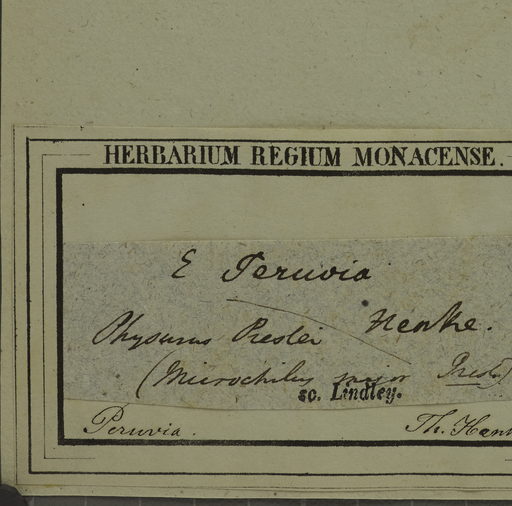 HERBARIUM REGIUM MONACENSE.
E Peruvia
Henke.
Physurus Preslei
(Microchilus major Presl)
sc. Lindley.
Peruvia. Th. Haen